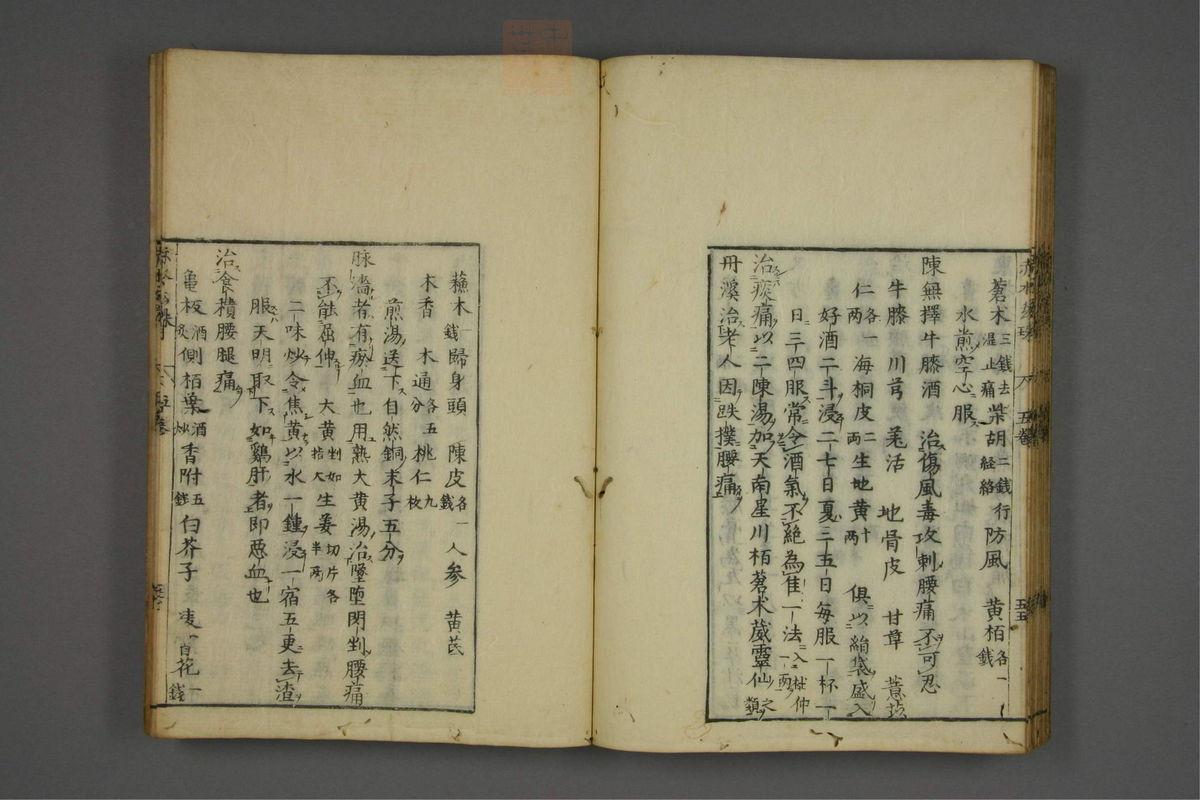 蒼朮三銭去湿止痛柴胡二銭行経絡防風 黄栢各一銭
水煎空心服
陳無擇牛膝酒 治傷風毒攻刺腰痛不可忍
牛膝 川芎 羌活 地骨皮 甘草 薏苡
仁各一両 海桐皮二両生地黄十両 俱以絹袋盛入
好酒二斗浸二七日夏三五日毎服一杯一
日三四服常令酒氣不絶為隹一法入杜仲一両
治痰痛以二陳湯加天南星川栢蒼朮葳靈仙之類
丹溪治老人因跌撲腰痛
蘓木一銭歸身頭 陳皮各一銭人参 黄芪
木香 木通各五分桃仁九枚
煎湯送下自然銅末子五分
脉濇者有瘀血也用熟大黄湯治墜堕閃剉腰痛
不能屈伸 大黄剉如指大生姜切片各半両
二味炒令焦黄以水一鍾浸一宿五更去渣
服天明取下如鷄肝者即悪血也
治食積腰腿痛
亀板酒炙側栢葉酒炒香附五銭白芥子 凌霄花一銭